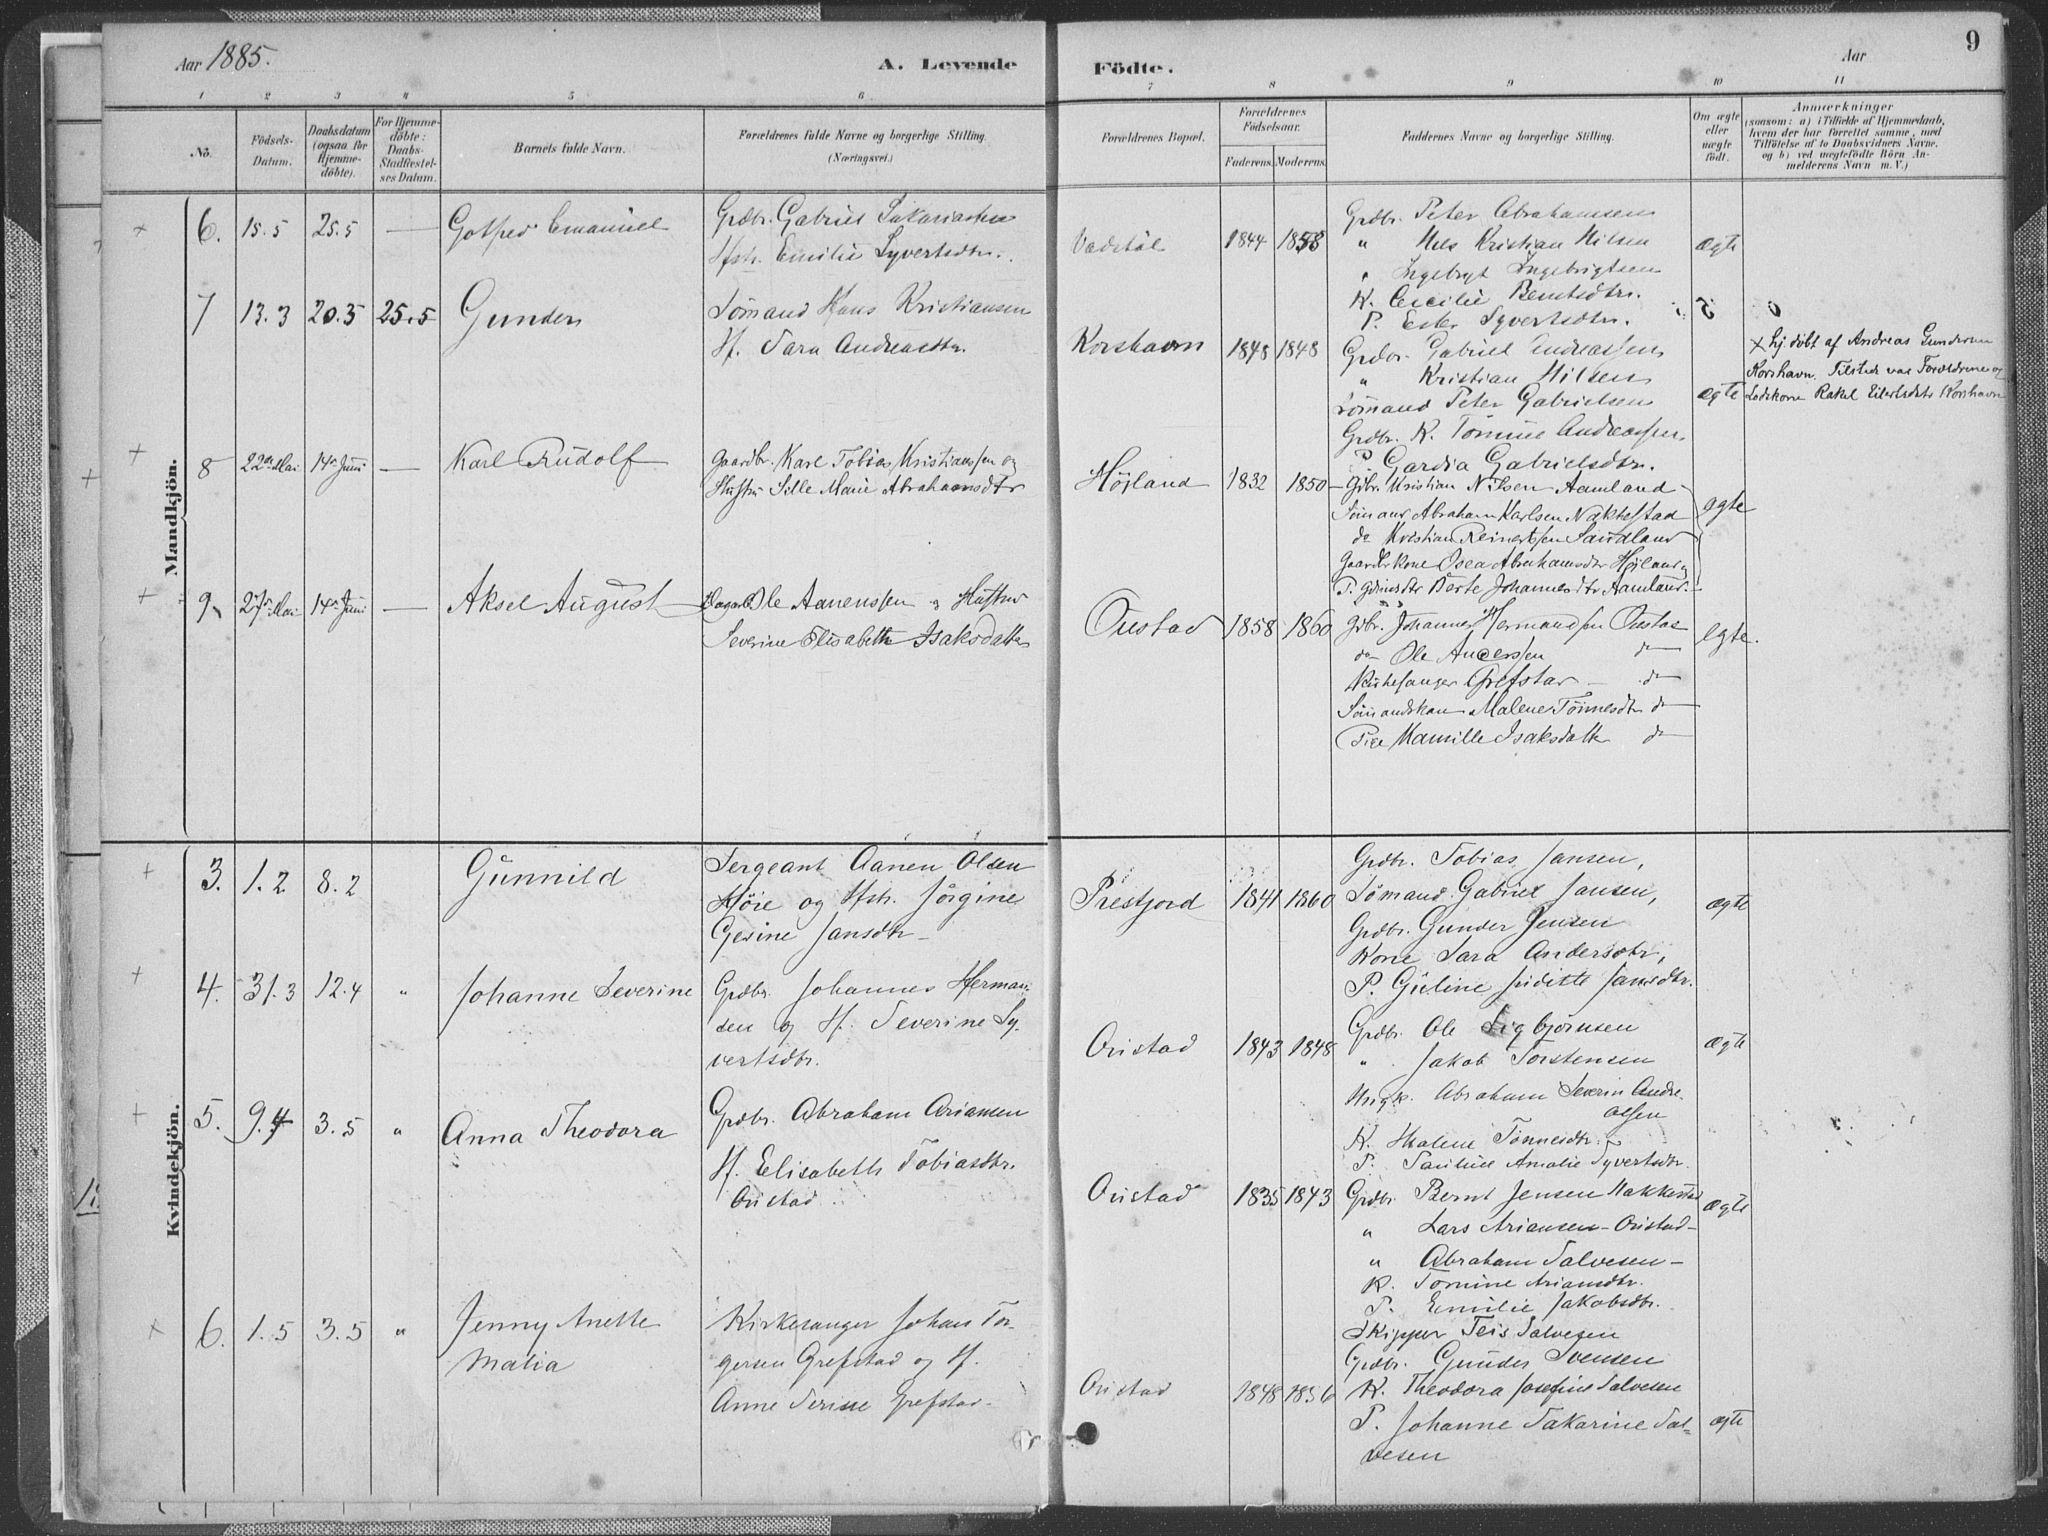 Aar 1885.
A. Levende
Födte.
Aar
9
1 2 3 4 5 6 7 8 9 10 11
No.
Födsels-Datum.
Daabsdatum (ogsaa for Hjemmedöbte).
For Hjemmedöbte: Daabs-Stadfæstelses Datum.
Barnets fulde Navn.
Forældrenes fulde Navne og borgerlige Stilling. (Næringsvei.)
Forældrenes Bopæl.
Forældrenes Födselsaar.
Faderens. Moderens.
Faddernes Navne og borgerlige Stilling.
Om ægte eller uægte födt.
Anmærkninger
(saasom: a) i Tilfælde af Hjemmedaab,
hvem der har forrettet samme, med
Tilföielse af to Daabsvidners Navne,
og b) ved uægtefödte Börn An-
melderens Navn m. V.)
Mandkjön.
6. 15.5 25.5 — Gotfred Emanuel
Grdbr. Gabriel Sakariassen
Hstr. Emilie Syvertsdtr.
1844 1858
Grdbr. Peter Abrahamsen
" Nils Kristian Nilsen
" Ingebrgt Ingebrigtsen
K. Cecilie Berntsdtr.
P. Ester Syvertsdtr.
ægte
7 13.3 20.3 25.5 Gunder
Sømand Hans Kristiansen
H. Sara Andreasdtr.
Korshavn 1848 1848
Grdbr. Gabriel Andreassen
" Kristian Nilsen
Sømand Peter Gabrielsen
Grdbr. K. Tomine Andreassen
P. Gardia Gabrielsdtr.
ægte
× hj. döbt af Andreas Gundersen
Korshavn. Tilstede var Forældrene og
Lodskone Rakel Eilertsdtr Korshavn
8 22de Mai 14de Juni — Karl Rudolf
Gaardbr. Karl Tobias Kristianssen og
Hustru Sille Marie Abrahamsdtr
Höjland 1832 1850
Gdbr. Kristian Nilsen Aamland
Sömand Abraham Karlsen Nakkestad
do Kristian Reinertsen Sandland
Gaardbrkone Osea Abrahamsdtr Höjland og
P. Gdmdtr Berte Johannesdtr Aamland.
ægte
9 27de Mai 14de Juni — Aksel August
Ole Aanenssen og Hustru
Severine Elisabeth Isaksdatter
Oustad 1858 1860
Gdbr. Johannes Hermandsen Oustad
do Ole Anderssen do
Kirkesanger Grefstad — do
Sömandskone Malene Tönnesdtr do
Pige Kamille Isaksdatter do
egte.
Kvindekjön.
3. 1.2 8.2 Gunnild
Sergeant Aanen Olsen
Höie og Hstr. Jörgine
Gesine Jansdtr
Prestjord 1841 1860
Grdbr. Tobias Jansen,
Sömand Gabriel Jansen,
Grdbr. Gunder Jensen
Kone Sara Andersdtr,
P. Guline Juditte Jansdtr.
ægte
4. 31.3 12.4 " Johanne Severine
Grdbr. Johannes Herman-
sen og H. Severine Sy-
vertsdtr.
Oustad 1843 1848
Grdbr. Ole Sigbjörnsen
" Jakob Torstensen
Ungk. Abraham Severin Andre-
assen
K. Malene Tönnesdtr.
P. Pauline Amalie Syvertsdtr.
ægte
5. 9.4 3.5 " Anna Theodora
Grdbr. Abraham Ariansen
H. Elisabeth Tobiasdtr.
Oustad.
Oustad 1835 1843
Grdbr. Bernt Jensen Nakkestad
" Lars Ariansen – Oustad –
" Abraham Salvesen –
K. Tomine Ariansdtr.
P. Emilie Jakobsdtr.
ægte
6. 1.5 3.5 " Jenny Anette
Malia
Kirkesanger Johan Tor-
gersen Grefstad og H.
Anne Serine Grefstad.
Oustad 1848 1856
Skipper Teis Salvesen
Grdbr. Gunder Svensen
K. Theodora Josefine Salvesen
P. Johanne Sakarine Sal-
vesen
ægte